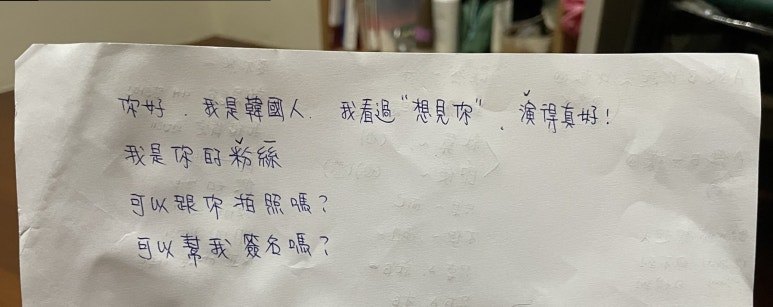 你好．我是韓國人． 我看過“想見你”．演得真好！
我是你的粉絲
可以跟你拍照嗎？
可以幫我簽名嗎？